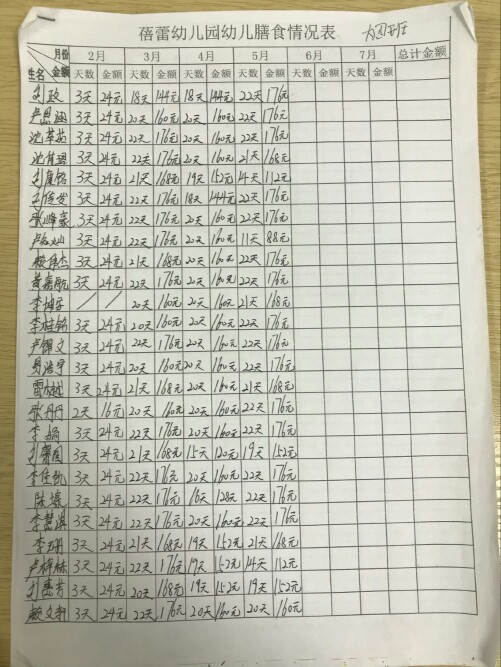 蓓蕾幼儿园幼儿膳食情况表 大四班
月份 2月 3月 4月 5月 6月 7月 总计金额
生名 金额 天数 金额 天数 金额 天数 金额 天数 金额 天数 金额 天数 金额
刘政 3天 24元 18天 144元 18天 144元 22天 176元
3天 24元 20天 160元 20天 160元 22天 176元
3天 24元 22天 176元 20天 160元 22天 176元
3天 24元 22天 176元 20天 160元 21天 168元
3天 24元 21天 168元 19天 152元 14天 112元
3天 24元 22天 176元 18天 144元 22天 176元
张峰豪 3天 24元 22天 176元 20天 160元 22天 176元
3天 24元 22天 176元 20天 160元 11天 88元
3天 24元 21天 168元 20天 160元 22天 176元
黄嘉航 3天 24元 22天 176元 20天 160元 22天 176元
/ / 20天 160元 20天 160元 21天 168元
李桂铭 3天 24元 20天 160元 20天 160元 22天 176元
卢锦文 3天 24元 22天 176元 20天 160元 22天 176元
3天 24元 20天 160元 20天 160元 22天 176元
3天 24元 21天 168元 20天 160元 21天 168元
张丹丹 2天 16元 20天 160元 20天 160元 22天 176元
李娟 3天 24元 22天 176元 20天 160元 22天 176元
3天 24元 21天 168元 15天 120元 19天 152元
3天 24元 22天 176元 20天 160元 22天 176元
3天 24元 22天 176元 16天 128元 22天 176元
李慧琪 3天 24元 22天 176元 20天 160元 22天 176元
3天 24元 21天 168元 19天 152元 21天 168元
3天 24元 22天 176元 19天 152元 14天 112元
3天 24元 20天 168元 19天 152元 19天 152元
3天 24元 22天 176元 20天 160元 20天 160元